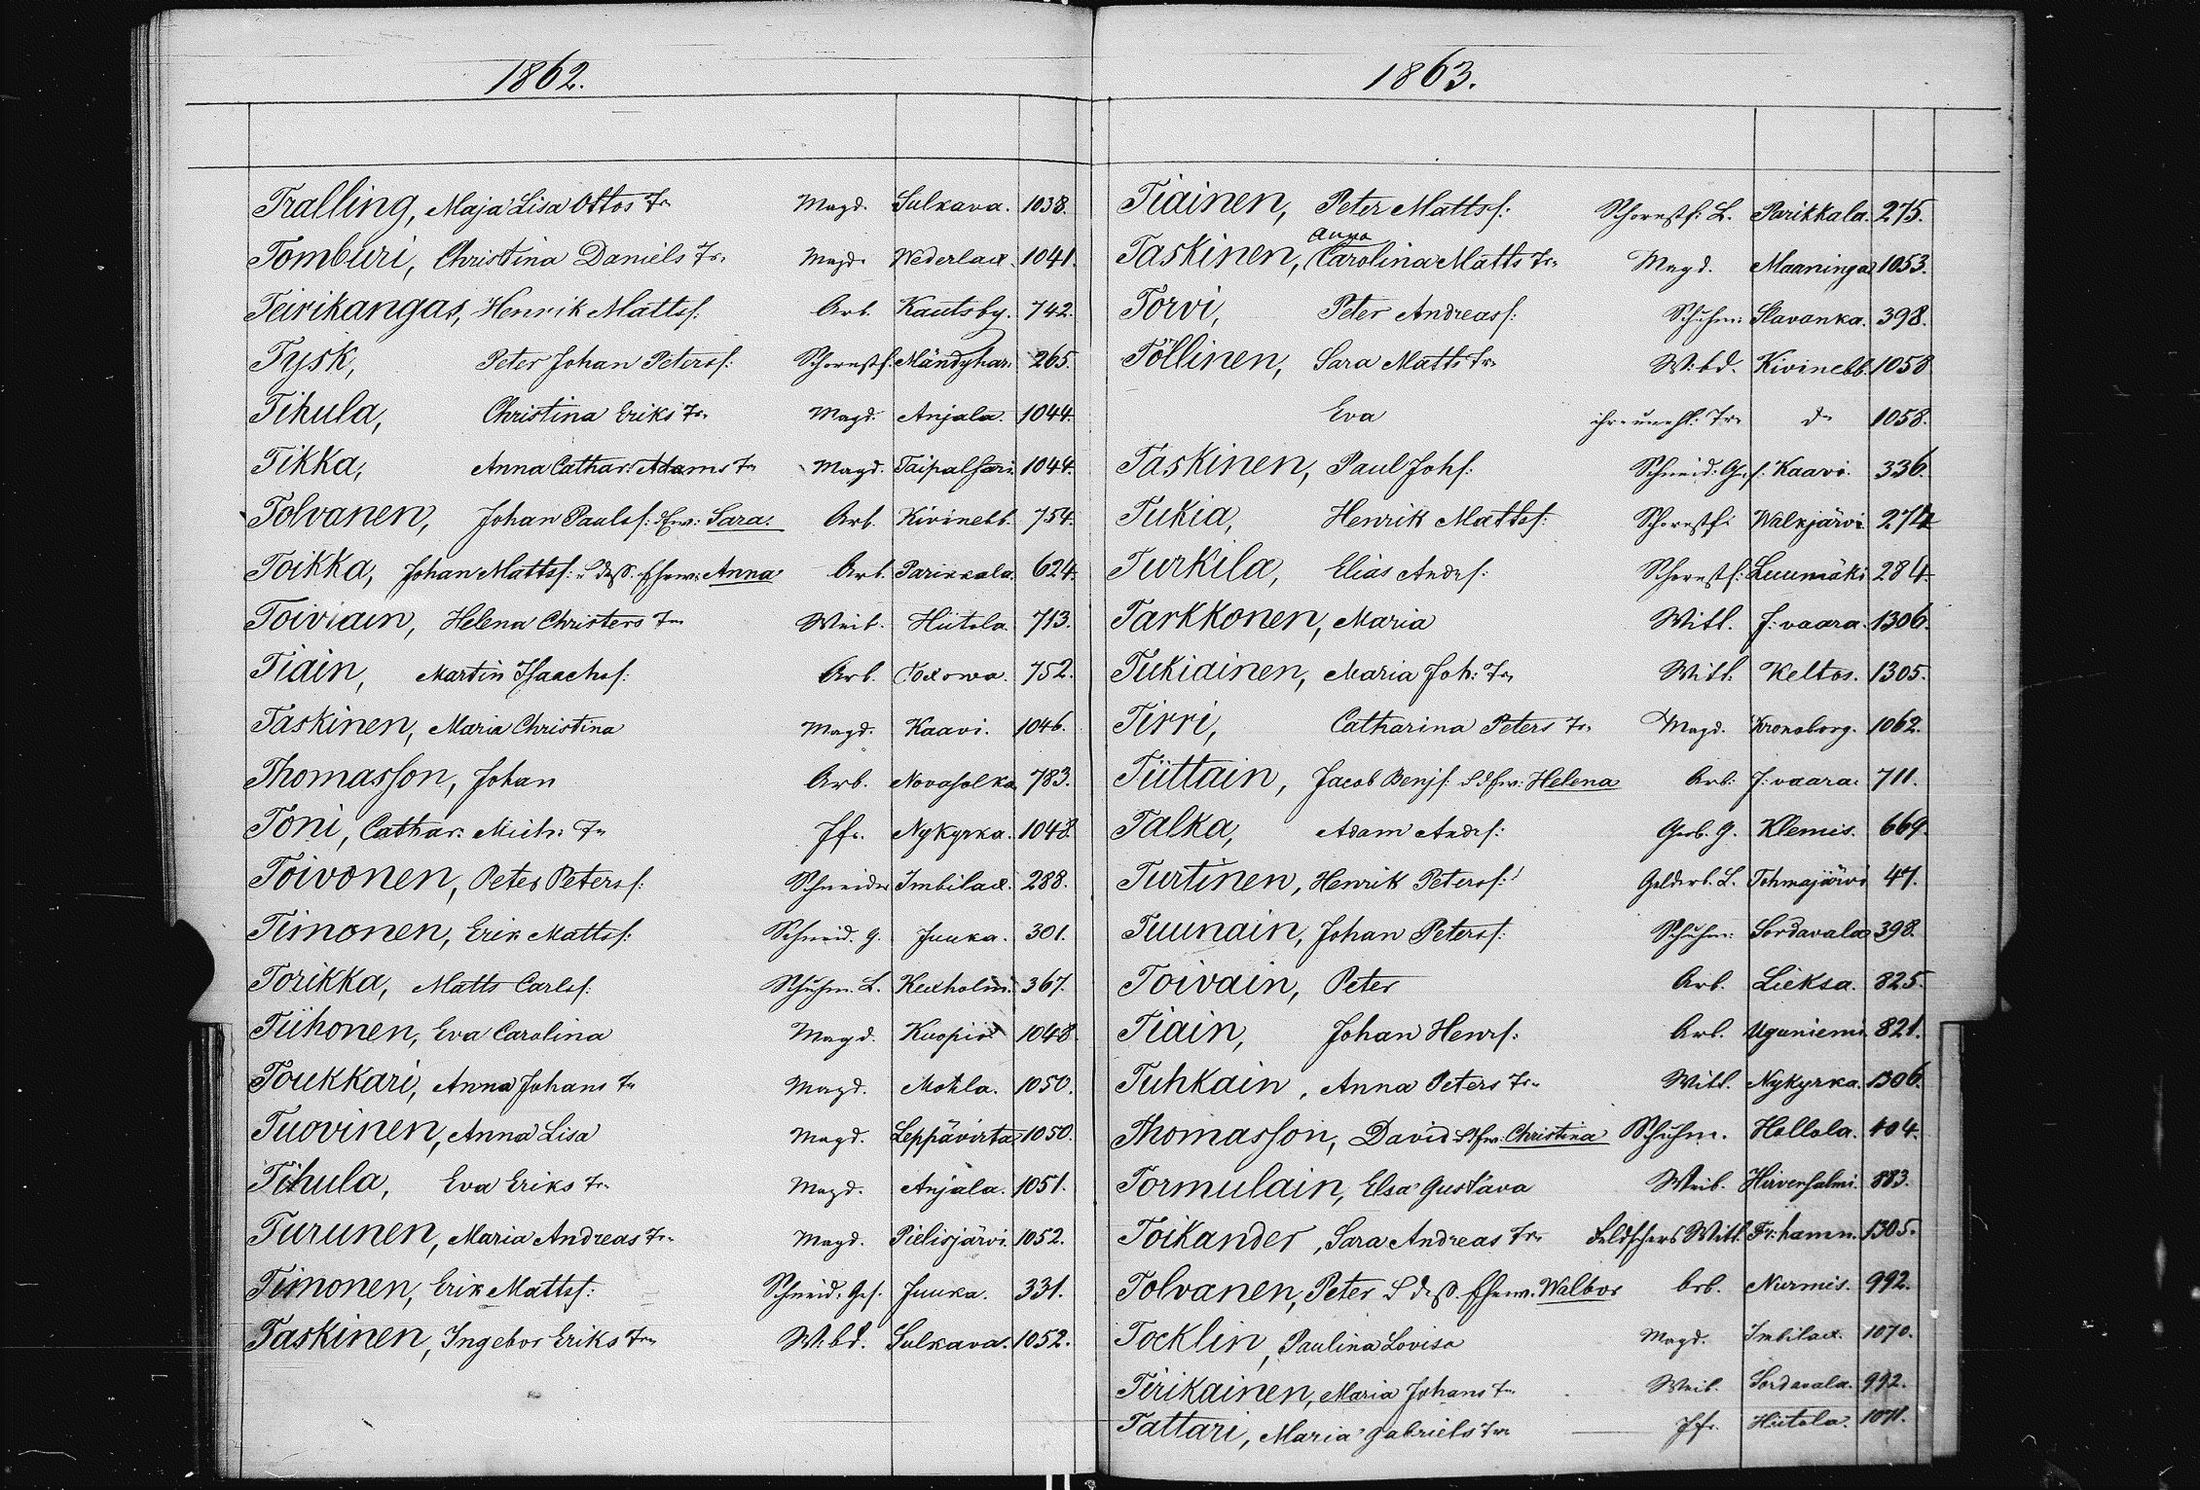 1862.
Tralling, Maja Lisa Ottos Tr. Magd. Sulkava. 1038.
Tomburi, Christina Daniels Tr. Magd. Wederlax. 1041.
Teirikangas, Henrik Mattsf. Arb. Kautsby. 742.
Tysk, Peter Johan Petersf: Schornstf. Mändyhar. 265.
Tihula, Christina Eriks Tr. Magd. Anjala. 1044.
Tikka, Anna Cathar: Adams Tr. Magd. Taipalsari. 1044.
Tolvanen, Johan Paulsf: Sara. Arb. Kivinebb. 754.
Toikka, Johan Mattsf: u deß. Ehew: Anna Arb. Parikkala. 624.
Toiviain, Helena Christers Tr. Weib. Hiitola. 713.
Tiain, Martin Isaachsf: Arb. 752.
Taskinen, Maria Christina Magd. Kaavi. 1046.
Thomasson, Johan Arb. Novasolka. 783.
Toni, Cathar: Mich: Tr. Jfr. Nykyrka. 1048.
Toivonen, Peter Petersf: Schneider Imbilax. 288.
Timonen, Erik Mattsf: Schneid. G. Juuka. 301.
Torikka, Matts Carlsf: Schuhm. L. Kexholm. 367.
Tiihonen, Eva Carolina Magd. Kuopio 1048.
Toukkari, Anna Johans Tr. Magd. Mohla. 1050.
Tuovinen, Anna Lisa Magd. Leppävirta 1050.
Tihula, Eva Eriks Tr. Magd. Anjala. 1051.
Turunen, Maria Andreas Tr. Magd. Pielisjärvi. 1052.
Timonen, Erik Mattsf: Schneid. Ges. Juuka. 331.
Taskinen, Ingebor Eriks Tr. W:bd. Sulkava. 1052.
1863.
Tiainen, Peter Mattsf: Schornstf: L. Parikkala. 275.
Anna
Taskinen, Carolina Matts Tr. Magd. Maaninga 1053.
Torvi, Peter Andreasf: Schuhm: Slavanka. 398.
Töllinen, Sara Matts Tr. W:bd. Kivinebb. 1058
Eva ihre unehl: Tr. do 1058.
Taskinen, Paul Johsf: Schneid: Gesf: Kaavi. 336.
Tukia, Henrik Mattsf: Schornstf: Walkjärvi. 274
Turkila, Elias Andrsf: Schornstf: Luumäki 284.
Tarkkonen, Maria Witt. J:vaara. 1306.
Tukiainen, Maria Joh: Tr. Witt. Keltos. 1305.
Tirri, Catharina Peters Tr. Magd. Kronoborg. 1062.
Tiittain, Jacob Benjsf: Helena Arb: J:vaara. 711.
Talka, Adam Andrsf: Gerb. G. Klemis. 669.
Turtinen, Henrik Petersf: L. Tohmajärvi 47.
Tuunain, Johan Petersf: Schuhm: Sordavala 398.
Toivain, Peter Arb. Lieksa. 825.
Tiain, Johan Henrsf: Arb. Uguniemi. 821.
Tuhkain, Anna Peters Tr. Witt. Nykyrka. 1306.
Thomasson, David Christina Schuhm. Hollola. 404.
Tormulain, Elsa Gustava Weib. Hirvensalmi. 883.
Toikander, Sara Andreas Tr. Feldschers Witt. Fr:hamn. 1305.
Tolvanen, Peter & deß. Ehew. Walbor Arb. Nurmis. 992.
Tocklin, Paulina Lovisa Magd. Imbilax. 1070.
Tirikainen, Maria Johans Tr. Weib. Sordavala. 992.
Tattari, Maria Gabriels Tr. Jfr. Hiitola. 1071.